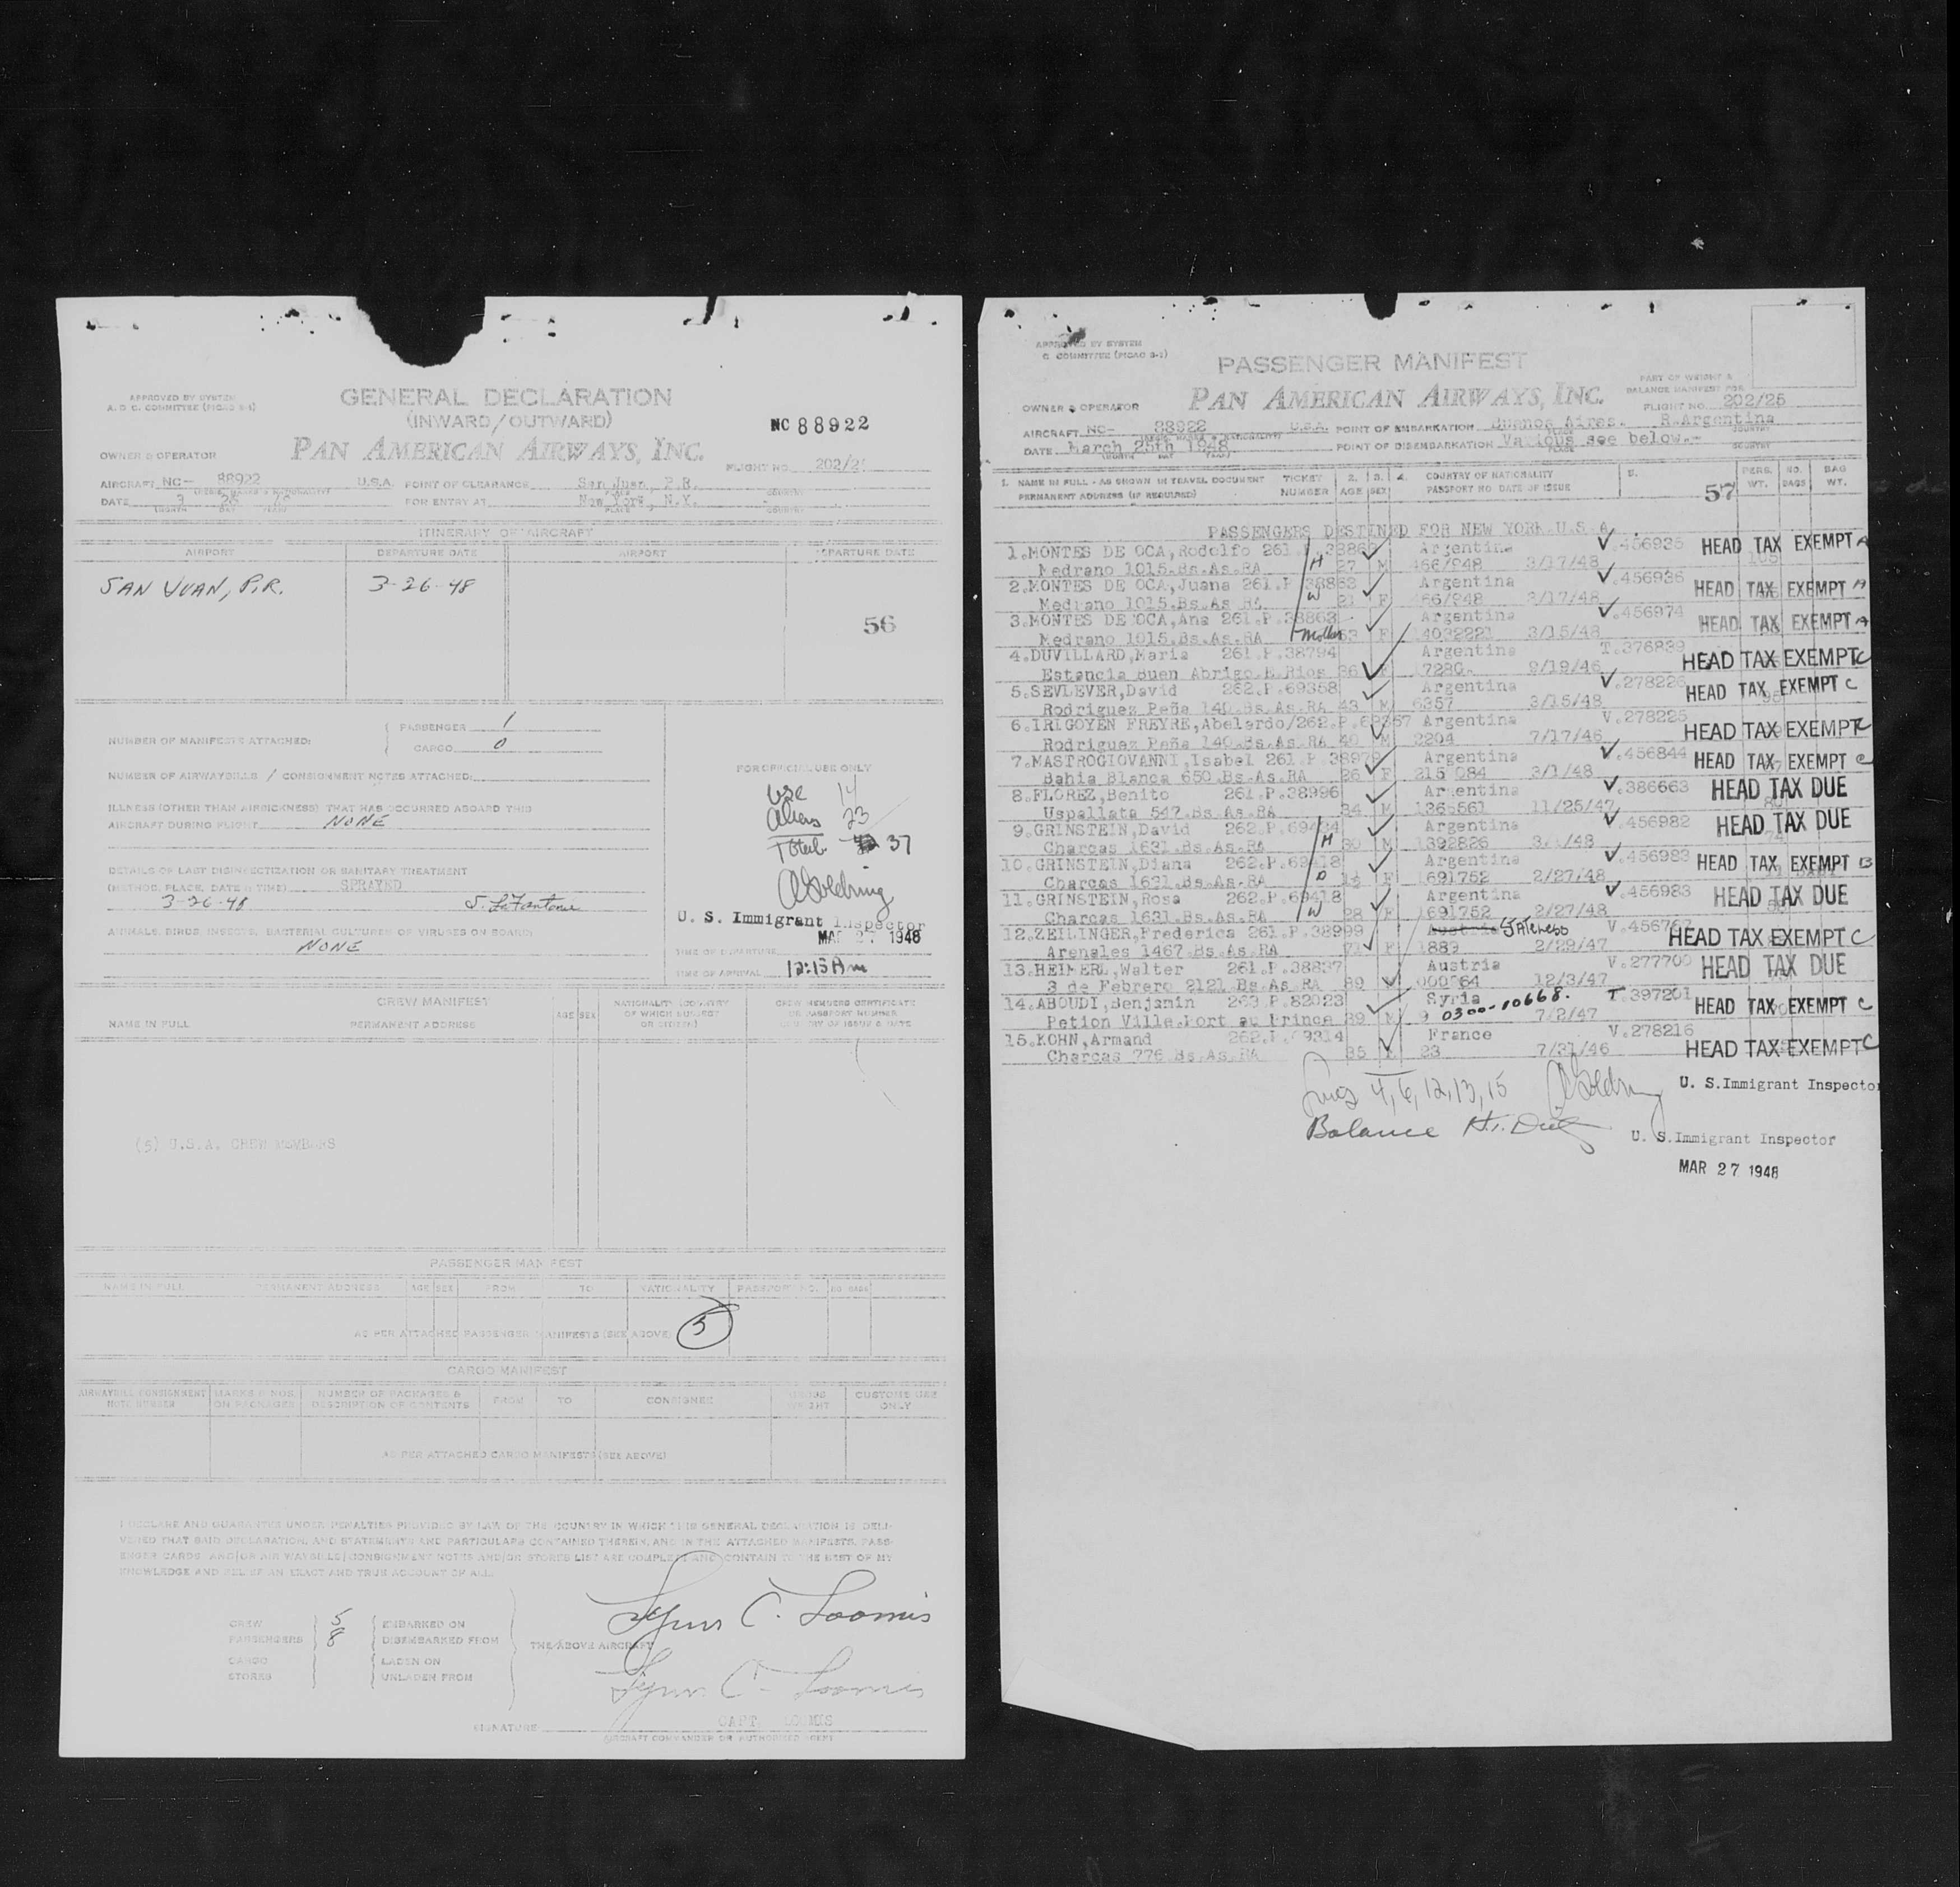 APPROVED BY SYSTEM
A. D C. COMMITTEE (PICAO S-1)
GENERAL DECLARATION
(INWARD/OUTWARD)
NC 88922
PAN AMERICAN AIRWAYS, INC.
OWNER & OPERATOR
FLIGHT NO. 202/2
AIRCRAFT NC- 88922 U.S.A. POINT OF CLEARANCE San Juan, P.R.
DATE 3 26 FOR ENTRY AT New York, N.Y.
ITINERARY OF AIRCRAFT
AIRPORT DEPARTURE DATE AIRPORT DEPARTURE DATE
SAN JUAN, P.R. 3-26-48
56
NUMBER OF MANIFESTS ATTACHED: PASSENGER 1
CARGO 0
NUMBER OF AIRWAYBILLS / CONSIGNMENT NOTES ATTACHED:
FOR OFFICIAL USE ONLY
ILLNESS (OTHER THAN AIRSICKNESS) THAT HAS OCCURRED ABOARD THIS
AIRCRAFT DURING FLIGHT NONE
USC 14
Aliens 23
Total 37
DETAILS OF LAST DISINSECTIZATION OR SANITARY TREATMENT
(METHOD, PLACE, DATE & TIME) SPRAYED
3-26-48
U. S. Immigrant Inspector
MAR 27 1948
ANIMALS, BIRDS, INSECTS, BACTERIAL CULTURES OR VIRUSES ON BOARD:
NONE
TIME OF DEPARTURE
TIME OF ARRIVAL 12:15 Am
CREW MANIFEST
NAME IN FULL PERMANENT ADDRESS AGE SEX
NATIONALITY (COUNTRY OF WHICH SUBJECT OR CITIZEN)
CREW MEMBERS CERTIFICATE OR PASSPORT NUMBER COUNTRY OF ISSUE & DATE
(5) U.S.A. CREW MEMBERS
PASSENGER MANIFEST
NAME IN FULL PERMANENT ADDRESS AGE SEX FROM TO NATIONALITY PASSPORT NO. NO. BAGS
AS PER ATTACHED PASSENGER MANIFESTS (SEE ABOVE) 5
CARGO MANIFEST
AIRWAYBILL CONSIGNMENT NOTE NUMBER MARKS & NOS. ON PACKAGES NUMBER OF PACKAGES & DESCRIPTION OF CONTENTS FROM TO CONSIGNEE GROSS WEIGHT CUSTOMS USE ONLY
AS PER ATTACHED CARGO MANIFESTS (SEE ABOVE)
I DECLARE AND GUARANTEE UNDER PENALTIES PROVIDED BY LAW OF THE COUNTRY IN WHICH THIS GENERAL DECLARATION IS DELI-
VERED THAT SAID DECLARATION, AND STATEMENTS AND PARTICULARS CONTAINED THEREIN, AND IN THE ATTACHED MANIFESTS, PASS-
ENGER CARDS AND/OR AIR WAYBILLS/CONSIGNMENT NOTES AND/OR STORES LIST ARE COMPLETE AND CONTAIN TO THE BEST OF MY
KNOWLEDGE AND ALL OF AN EXACT AND TRUE ACCOUNT OF ALL
CREW 5 EMBARKED ON
PASSENGERS 8 DISEMBARKED FROM
THE ABOVE AIRCRAFT
CARGO LADEN ON
STORES UNLADEN FROM
Lynn C. Loomis
Lynn C. Loomis
SIGNATURE CAPT. LOOMIS
AIRCRAFT COMMANDER OR AUTHORIZED AGENT
APPROVED BY SYSTEM
C COMMITTEE (PICAO S-2)
PASSENGER MANIFEST
PAN AMERICAN AIRWAYS, INC.
PART OF WEIGHT &
BALANCE MANIFEST FOR
FLIGHT NO. 202/25
OWNER & OPERATOR
AIRCRAFT NC- 88922 U.S.A. POINT OF EMBARKATION Buenos Aires. R.Argentina
DATE March 25th 1948 POINT OF DISEMBARKATION Various see below.-
1. NAME IN FULL - AS SHOWN IN TRAVEL DOCUMENT TICKET NUMBER 2. AGE 3. SEX 4. COUNTRY OF NATIONALITY 5. PERS. WT. NO. BAGS BAG WT.
PERMANENT ADDRESS (IF REQUIRED) PASSPORT NO DATE OF ISSUE 57
PASSENGERS DESTINED FOR NEW YORK.U.S.A.
1.MONTES DE OCA,Rodolfo 261.P.3886 Argentina V.456935 HEAD TAX EXEMPT A
Medrano 1015.Bs.As.RA H 27 M 466/948 3/17/48
2.MONTES DE OCA,Juana 261.P 38862 Argentina V.456936 HEAD TAX EXEMPT A
Medrano 1015.Bs.As RA W 21 F 466/948 3/17/48
3.MONTES DE OCA,Ana 261.P.38863 Argentina V.456974 HEAD TAX EXEMPT A
Medrano 1015.Bs.As.RA Mother 63 F 14032221 3/15/48
4.DUVILLARD,Maria 261.P.38794 Argentina T.376839 HEAD TAX EXEMPT C
Estancia Buen Abrigo.E.Rios 36 F 17280. 9/19/46
5.SEVLEVER,David 262.P.69358 Argentina V.278226 HEAD TAX EXEMPT C
Rodriguez Peña 140.Bs.As.RA 43 M 6357 3/15/48
6.IRIGOYEN FREYRE,Abelardo/262.P.69357 Argentina V.278225 HEAD TAX EXEMPT C
Rodriguez Peña 140.Bs.As.RA 40 M 2204 7/17/46
7.MASTROGIOVANNI,Isabel 261.P.38979 Argentina V.456844 HEAD TAX EXEMPT C
Bahia Blanca 650.Bs.As.RA 26 F 215 084 3/1/48
8.FLOREZ,Benito 261.P.38996 Argentina V.386663 HEAD TAX DUE
Uspallata 547.Bs.As.RA 34 M 1365561 11/25/47
9.GRINSTEIN,David 262.P.69424 Argentina V.456982 HEAD TAX DUE
Charcas 1631.Bs.As.RA H 30 M 1392826 /48
10.GRINSTEIN,Diana 262.P.69418 Argentina V.456983 HEAD TAX EXEMPT B
Charcas 1631.Bs.As.RA D F 1691752 2/27/48
11.GRINSTEIN,Rosa 262.P.69418 Argentina V.456983 HEAD TAX DUE
Charcas 1631.Bs.As.RA W 28 F 1691752 2/27/48
12.ZEILINGER,Frederica 261.P.38999 Austria Stateless V.45676 HEAD TAX EXEMPT C
Arenales 1467.Bs.As.RA 71 F 1889 2/29/47
13.HEIMERL,Walter 261.P.38837 Austria V.277700 HEAD TAX DUE
3 de Febrero 2121.Bs.As RA 39 000964 12/3/47
14.ABOUDI,Benjamin 263 P.82023 Syria T.397201 HEAD TAX EXEMPT C
Petion Ville.Port au Prince 39 M 9 0300-10668. 7/2/47
15.KOHN,Armand 262.P.69314 France V.278216 HEAD TAX EXEMPT C
Charcas 776 Bs.As.RA 35 23 7/31/46
4, 6, 12, 13, 15 U. S.Immigrant Inspector
Balance U. S.Immigrant Inspector
MAR 27 1948